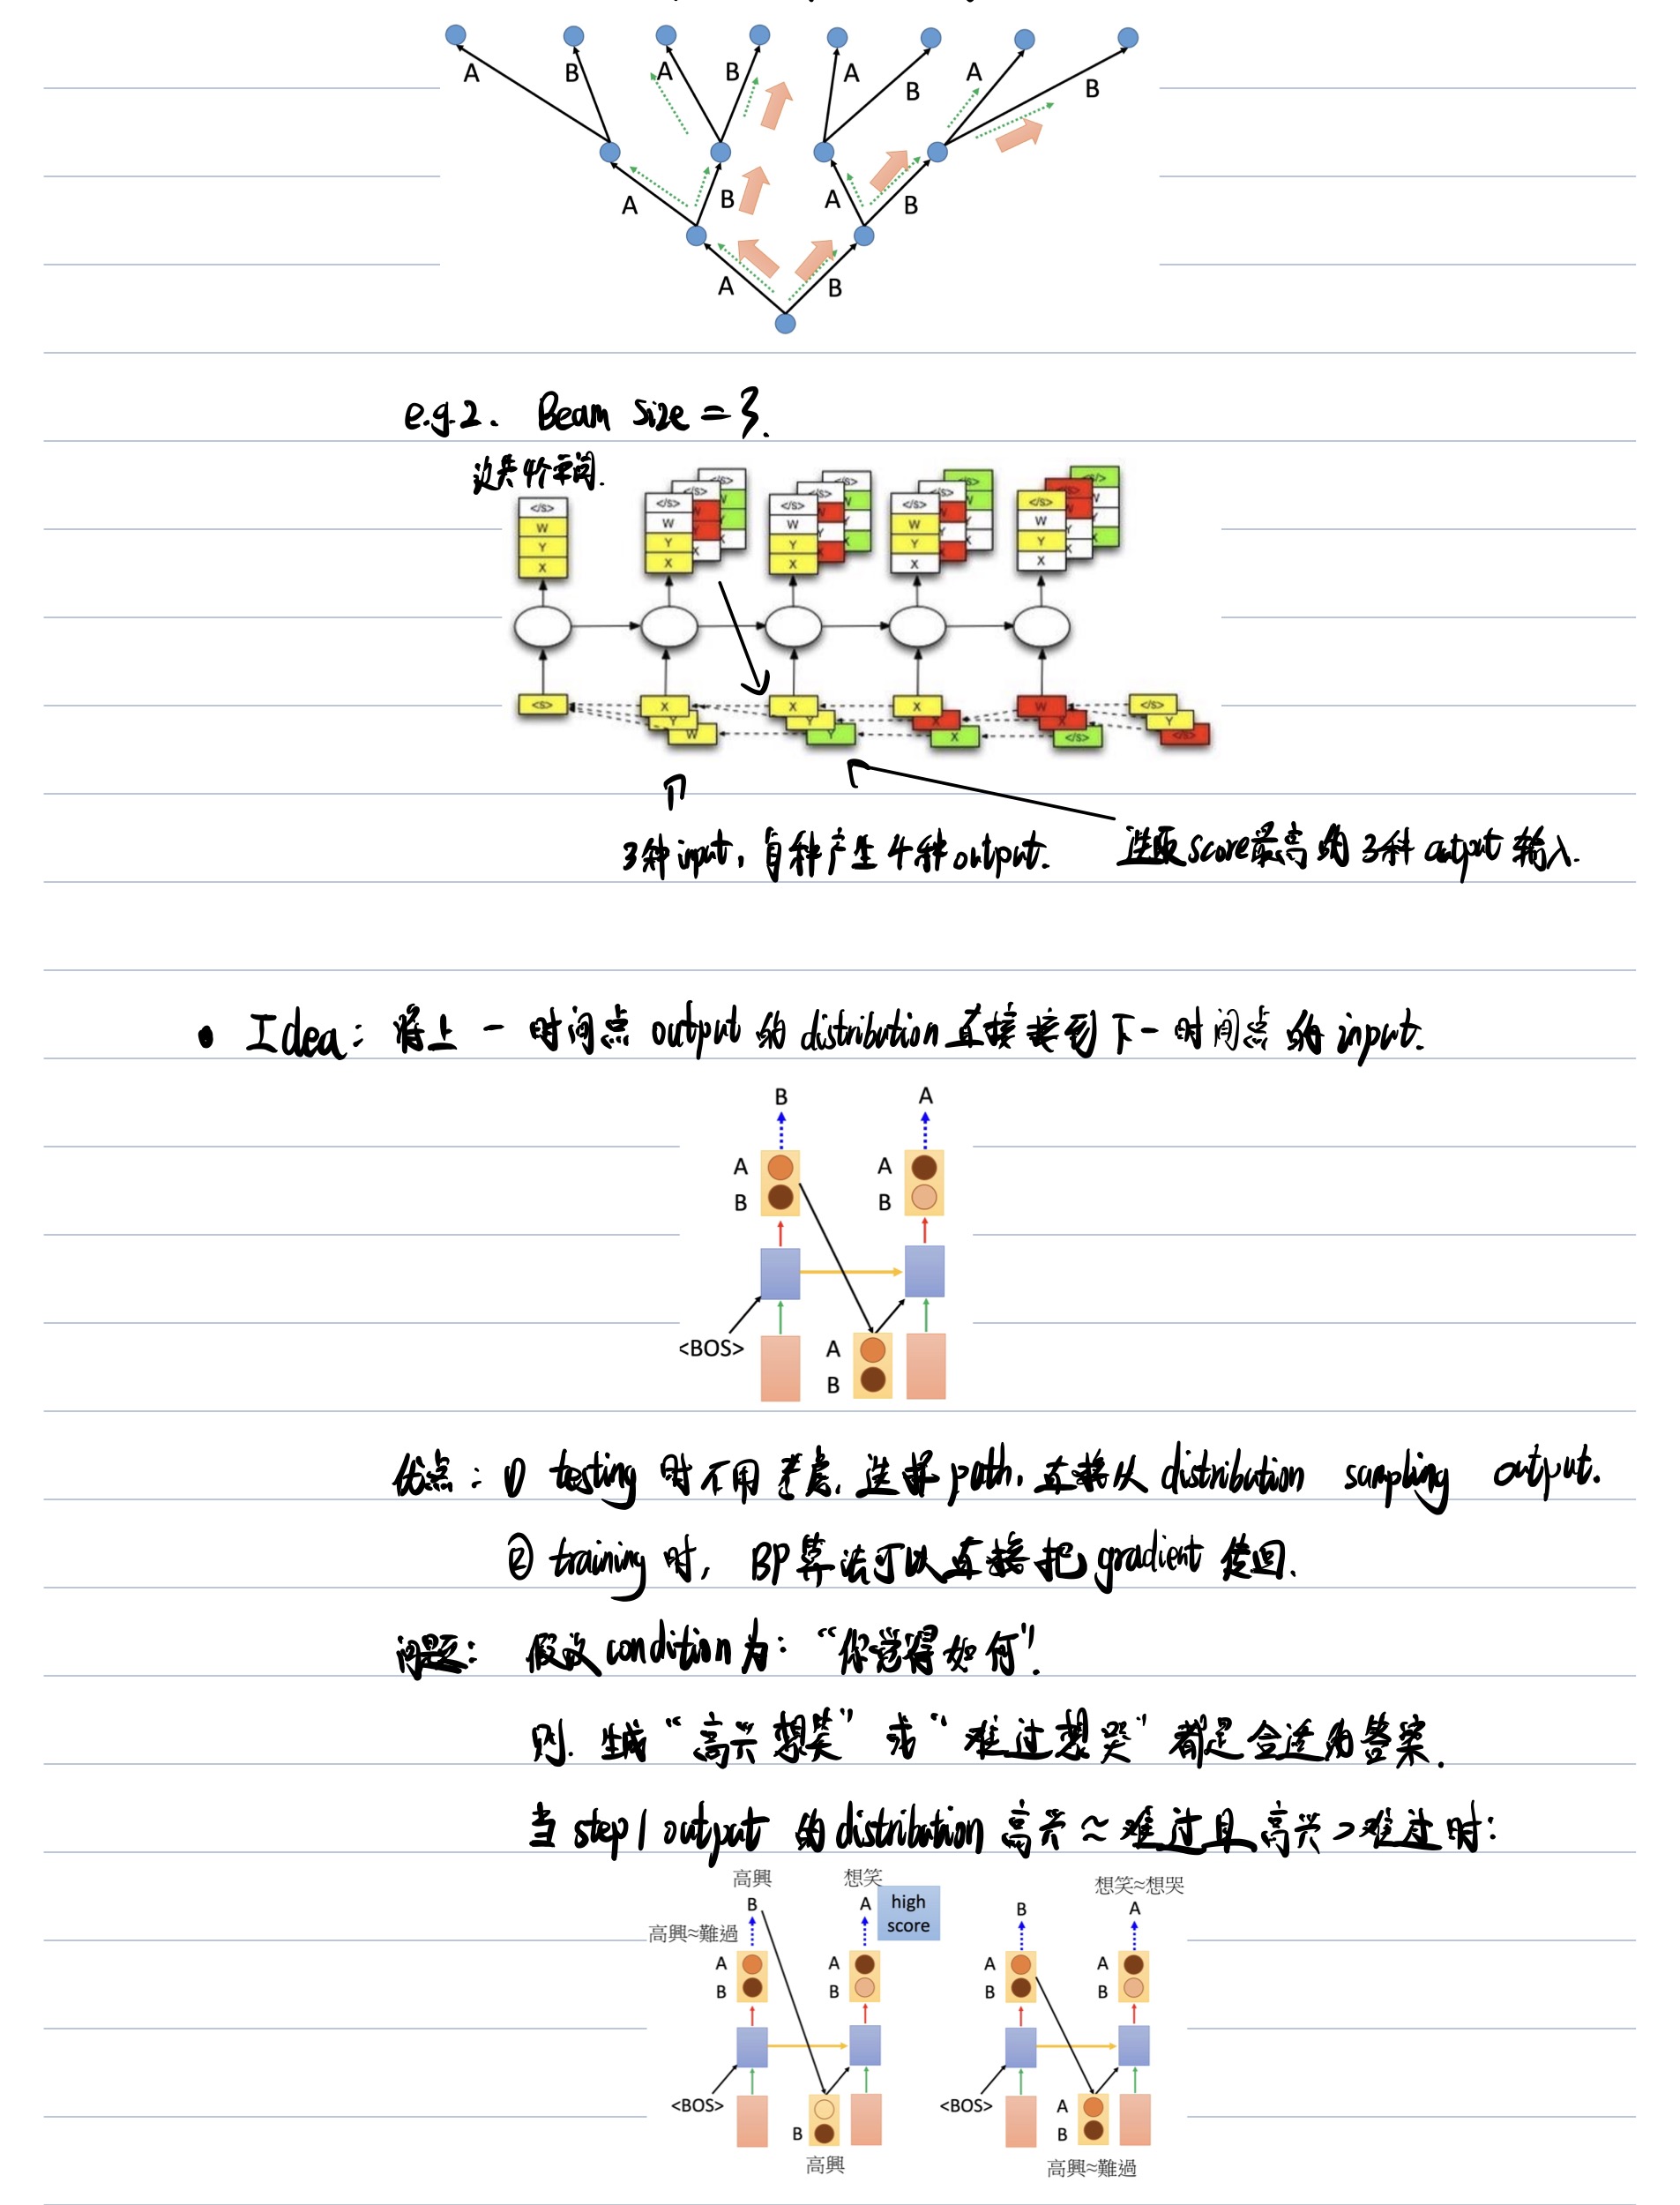 A B A B A B A B
A B A B
A B
e.g.2. Beam size = 3.
这共4个空间.
</s> </s> </s> </s> </s> </s> </s> </s> </s> </s> </s> </s> </s>
W W W W W
Y Y Y Y Y
X X X X X
<s> X X X W </s>
Y Y X X Y
W Y X </s> </s>
3种input, 每种产生4种output. 选取score最高的3种output输入.
• Idea: 将上一时间点output的distribution直接接到下一时间点的input.
B A
A A
B B
<BOS> A
B
优点: ① testing时不用考虑.选择path, 直接从distribution sampling output.
② training时, BP算法可以直接把gradient传回.
问题: 假设condition为: “你觉得如何”.
则. 生成“高兴想笑”或“难过想哭”都是合适的答案.
当step1 output的distribution高兴≈难过且高兴>难过时:
高興 想笑 想笑≈想哭
B A high score B A
高興≈難過
A A A A
B B B B
<BOS> <BOS> A
B B
高興 高興≈難過